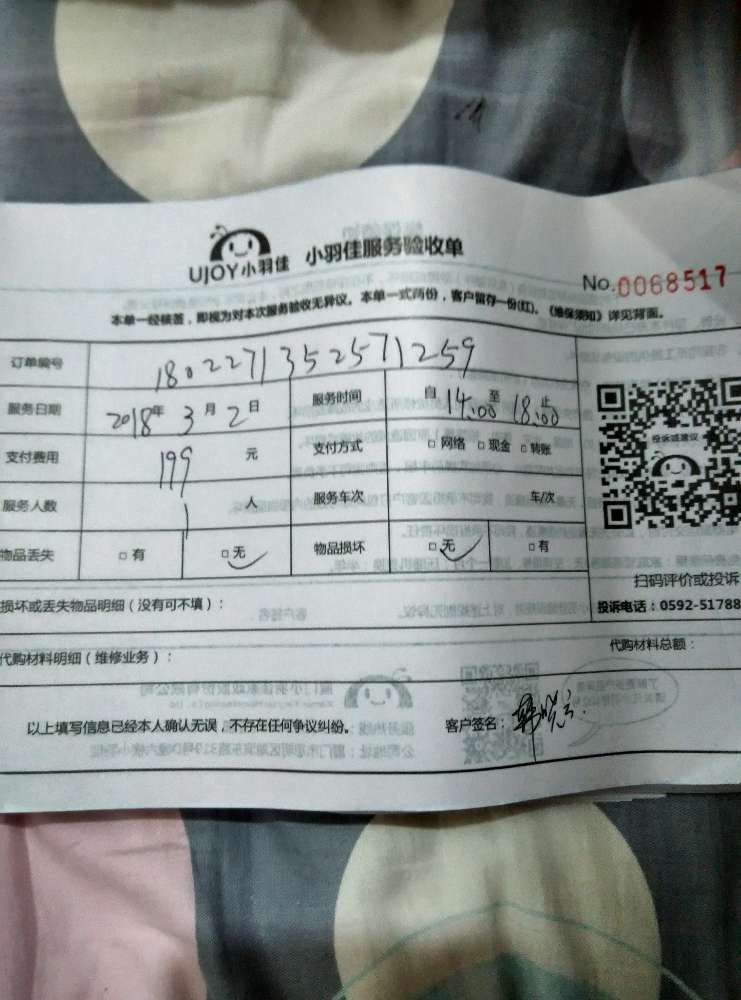 UJOY小羽佳 小羽佳服务验收单
No.0068517
本单一经核签，即视为对本次服务验收无异议。本单一式两份，客户留存一份(红)。《维保须知》详见背面。
订单编号 1802271352571259
服务日期 2018年 3月 2日 服务时间 自 14:00 至 18:00 止
支付费用 199 元 支付方式 □网络 □现金 □转账
服务人数 1 人 服务车次 车/次
投诉或建议
物品丢失 □有 □无 物品损坏 □无 □有
扫码评价或投诉
损坏或丢失物品明细（没有可不填）：
投诉电话：0592-51788
代购材料明细（维修业务）：
代购材料总额：
以上填写信息已经本人确认无误，不存在任何争议纠纷。 客户签名：